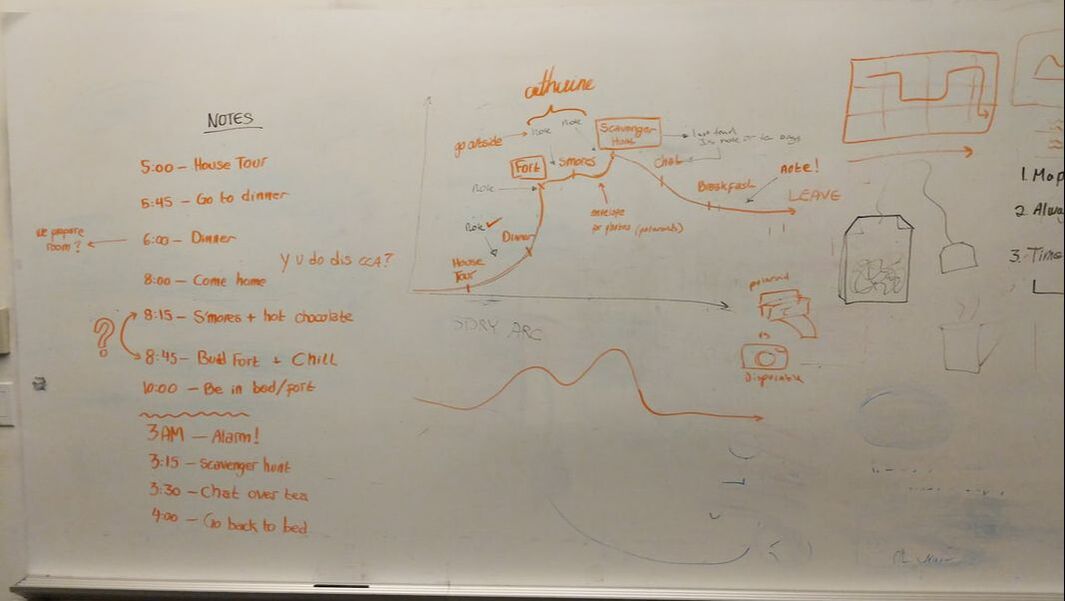 NOTES
5:00 – House Tour
5:45 – Go to dinner
6:00 – Dinner
we prepare
room?
y u do dis CCA?
8:00 – Come home
8:15 – S'mores + hot chocolate
?
8:45 – Build Fort + Chill
10:00 – Be in bed/fort
3AM – Alarm!
3:15 – Scavenger hunt
3:30 – Chat over tea
4:00 – Go back to bed
Note
Note
go outside
Scavenger
Hunt
Fort
Smores
Chat
note!
Note
Breakfast
LEAVE
envelope
for photos (polaroids)
Note
Dinner
House
Tour
STORY ARC
polaroid
vs
Disposable
1. Map
2. Alway
3. Time